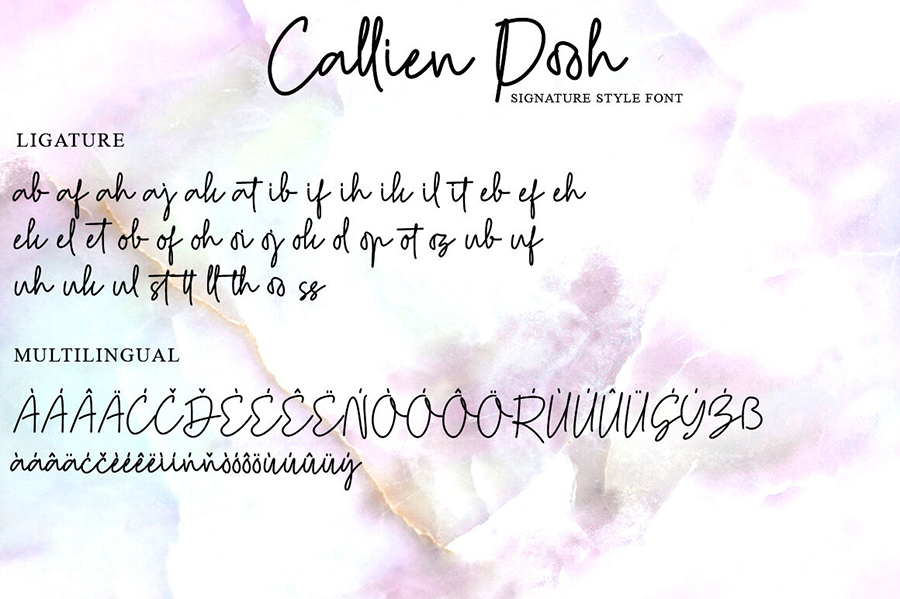 Callien Dooh
SIGNATURE STYLE FONT
LIGATURE
ab af ah aj ak at ib if ih ik il it eb ef eh
ek el et ob of oh oi oj ok ol op ot oz ub uf
uh uk ul st tt ll th oo ss
MULTILINGUAL
ÀÁÂÄĆČĎÈÉÊËŃÒÓÔÖŔÙÚÛÜŚÝŹß
àáâäćčèéêëìíńňòóôöùúûüý